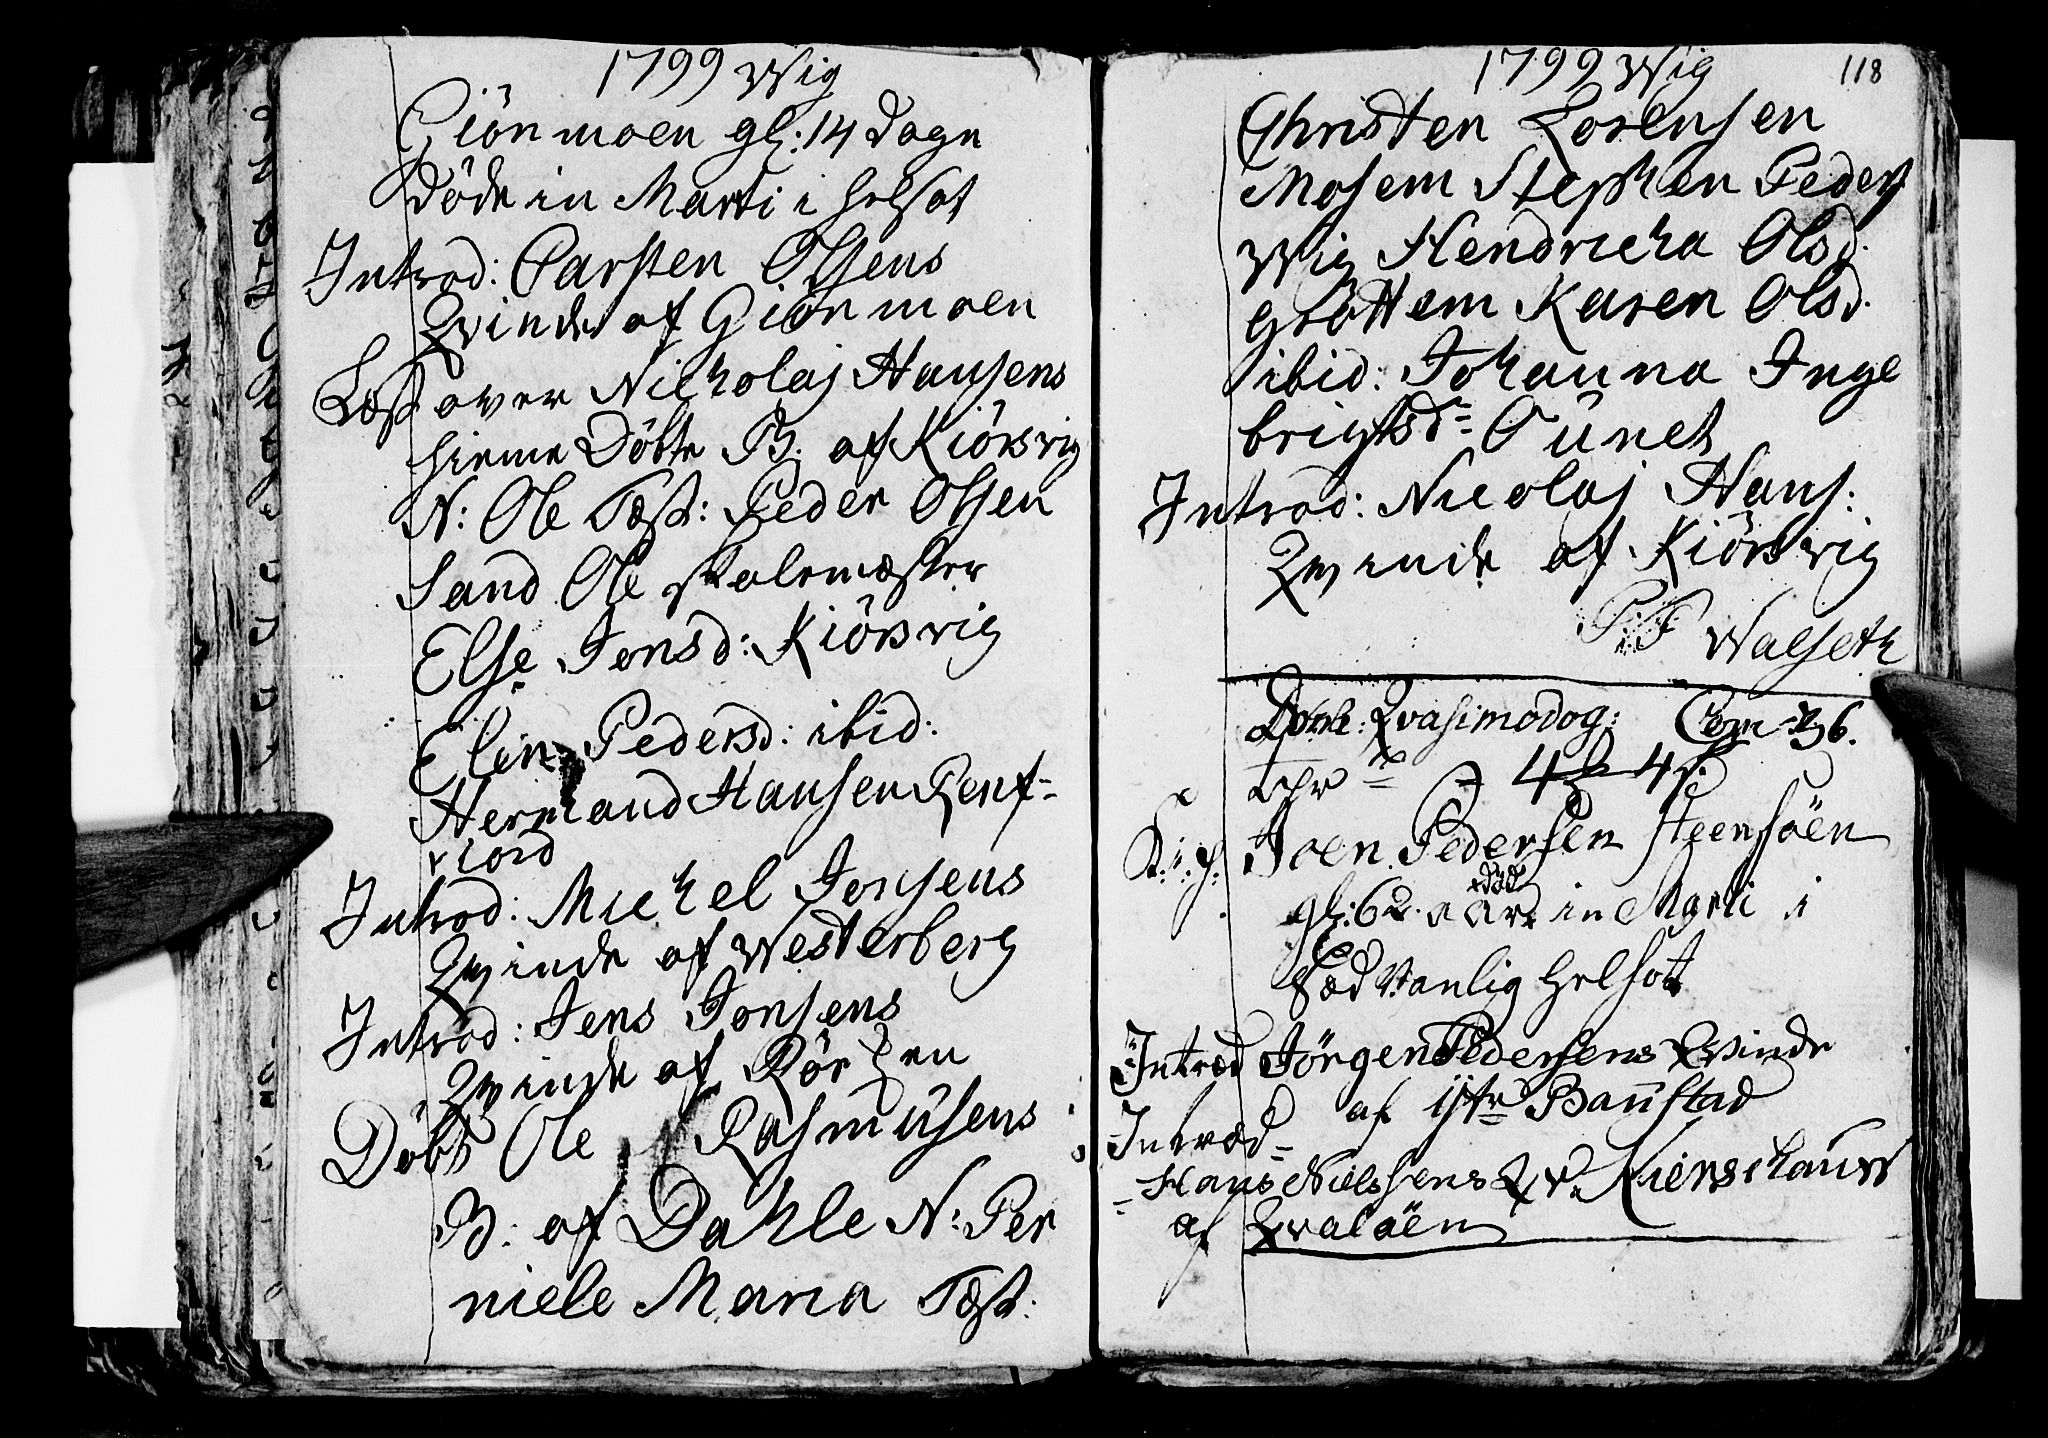 1799 Wig
Giönmoen gl: 14 dage
döde in Marti i helsot
Introd: Carsten Olsens
Qvinde af Giönmoen
Læst over Nicholaj Hansens
hieme Döbte B. af Kiörsvig
N: Ole Test: Peder Olsen
Sand Ole skolemæster
Else Jonsd: Kiörsvig
Elin Pedersd: ibid:
Hermand Hansen Renf-
iord
Introd: Michel Jonsens
Qvinde af Westerberg
Introd: Jens Jonsens
Qvinde af Rör en
Döbt Ole Rasmusens
B: af Dahle N: Per
niele Maria Test:
1799 Wig
118
Christen Lorensen
Mosem Stephen Peders
Wig Hendricha Olsd.
Gröttem Karen Olsd.
ibid: Johanna Inge
brigtsd= Tunet
Introd: Nicolaj Hans:
Qvinde af Kiörsvig
P: F Walseth
Qvasimodog: 36.
Joen Pedersen Steensöen
gl: 62 aar död in Marti i
Sædvanlig helsot
Introd Jörgen Pedersens Qvinde
af ytre Baustad
Introd=
Hans Nielsens Qv.
af Qvalöen